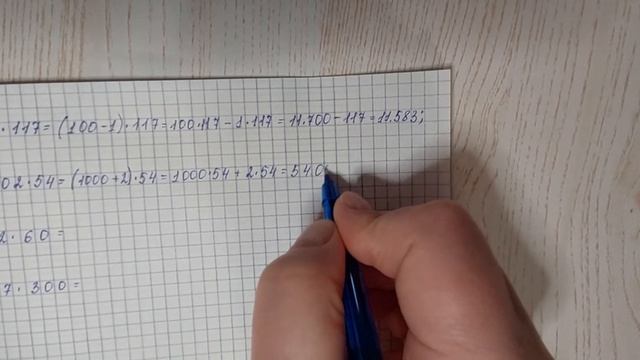 · 117 = (100 - 1) · 117 = 100 · 117 - 1 · 117 = 11.700 - 117 = 11.583;
02 · 54 = (1000 + 2) · 54 = 1000 · 54 + 2 · 54 = 540
2 · 60 =
7 · 300 =